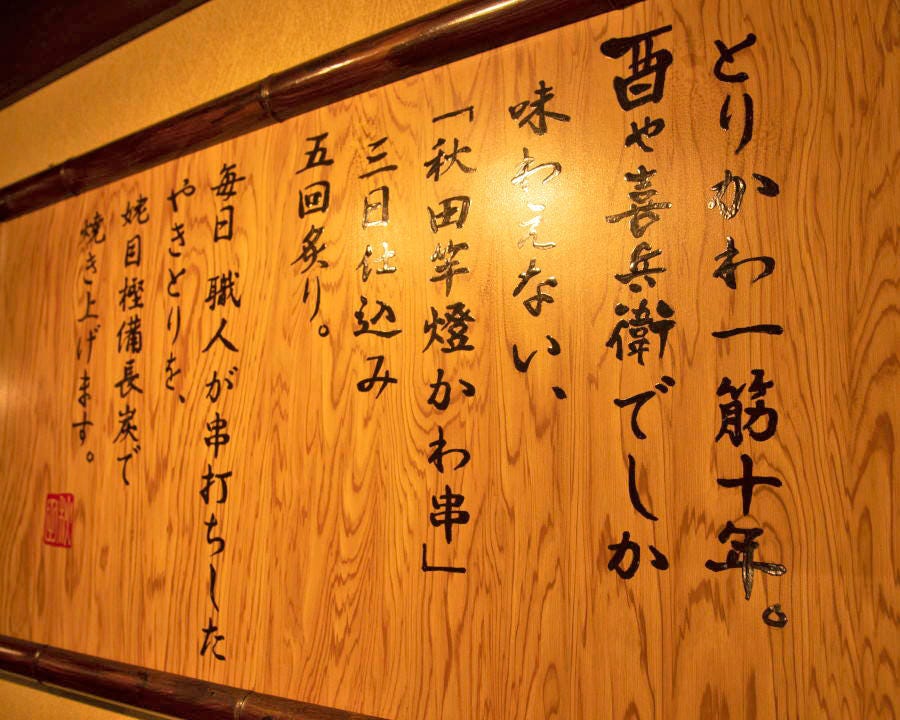 とりかわ一筋十年。
酉や喜兵衛でしか
味わえない、
「秋田竿燈かわ串」
三日仕込み
五回炙り。
毎日 職人が串打ちした
やきとりを、
姥目樫備長炭で
焼き上げます。